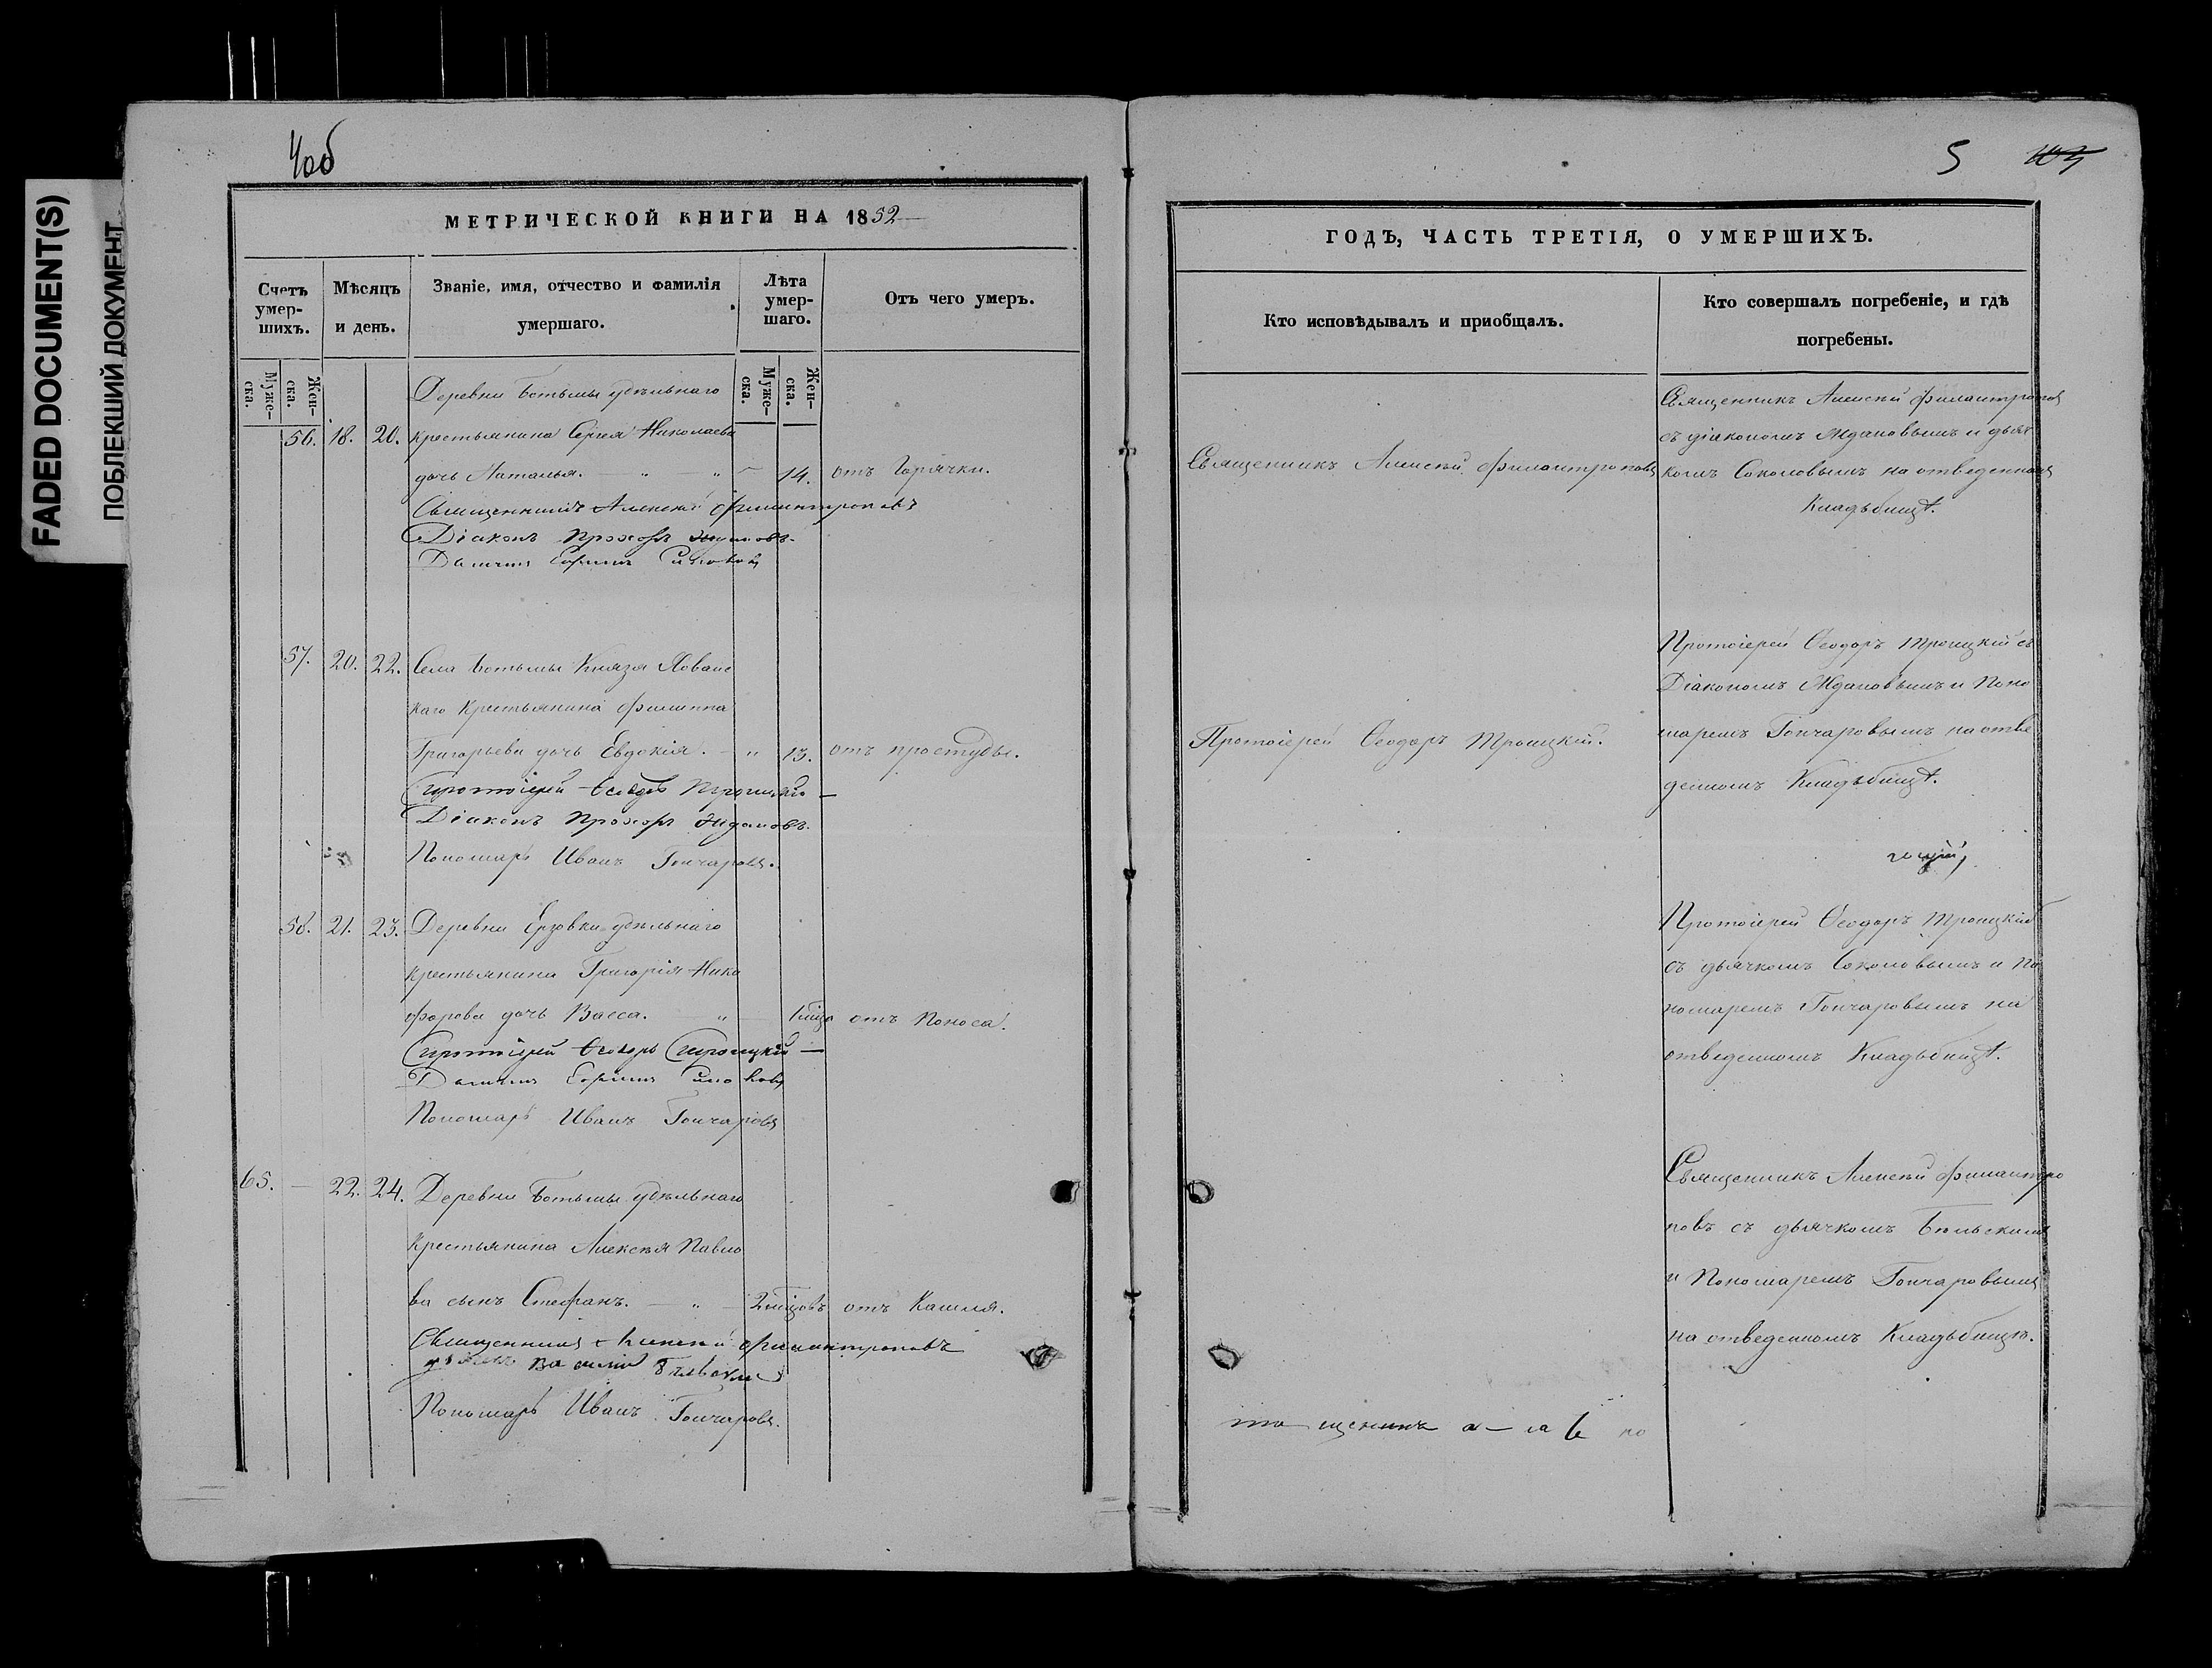 FADED DOCUMENT(S)
ПОБЛЕКШИЙ ДОКУМЕНТ
4об
МЕТРИЧЕСКОЙ КНИГИ НА 1852
Счетъ умер-шихъ.
Мѣсяцъ и день.
Званіе, имя, отчество и фамилія умершаго.
Лѣта умер-шаго.
Отъ чего умеръ.
Муже-ска.
Жен-ска.
Муже-ска.
Жен-ска.
Деревни Ботьмы удѣльнаго
56. 18. 20. крестьянина Сергея Николаева
дочь Наталья. 14. отъ Горячки.
Священникъ Алексѣй Филантроповъ
Діаконъ Прохоръ Ждановъ
57. 20. 22. Села Ботьмы Князя Хованс
каго Крестьянина Филиппа
Григорьева дочь Евдокія. 13. отъ простуды.
Протоіерей Ѳеодоръ Троицкій
Діаконъ Прохоръ Ждановъ.
Пономарь Иванъ Гончаровъ.
58. 21. 23. Деревни Ерзовки удѣльнаго
крестьянина Григорія Ники
форова дочь Васса. отъ Поноса.
Протоіерей Ѳеодоръ Троицкій
Пономарь Иванъ Гончаровъ
65. 22. 24. Деревни Ботьмы удѣльнаго
Крестьянина Алексѣя Павло
ва сынъ Стефанъ. 2 отъ Кашля.
Священникъ Алексѣй Филантроповъ
Василій
Пономарь Иванъ Гончаровъ.
5 103
ГОДЪ, ЧАСТЬ ТРЕТІЯ, О УМЕРШИХЪ.
Кто исповѣдывалъ и приобщалъ.
Кто совершалъ погребеніе, и гдѣ погребены.
Священникъ Алексѣй Филантроповъ
Священникъ Алексѣй Филантроповъ
съ діакономъ Ждановымъ и дьяч
комъ Соколовымъ на отведенномъ
Кладьбищѣ.
Протоіерей Ѳеодоръ Троицкій.
Протоіерей Ѳеодоръ Троицкій съ
Діакономъ Ждановымъ и Поно
маремъ Гончаровымъ на отве
денномъ Кладьбищѣ.
Протоіерей Ѳеодоръ Троицкій
съ дьячкомъ Соколовымъ и По
номаремъ Гончаровымъ на
отведенномъ Кладьбищѣ.
Священникъ Алексѣй Филантро
повъ съ дьячкомъ Бѣльскимъ
и Пономаремъ Гончаровымъ
на отведенномъ Кладьбищѣ.